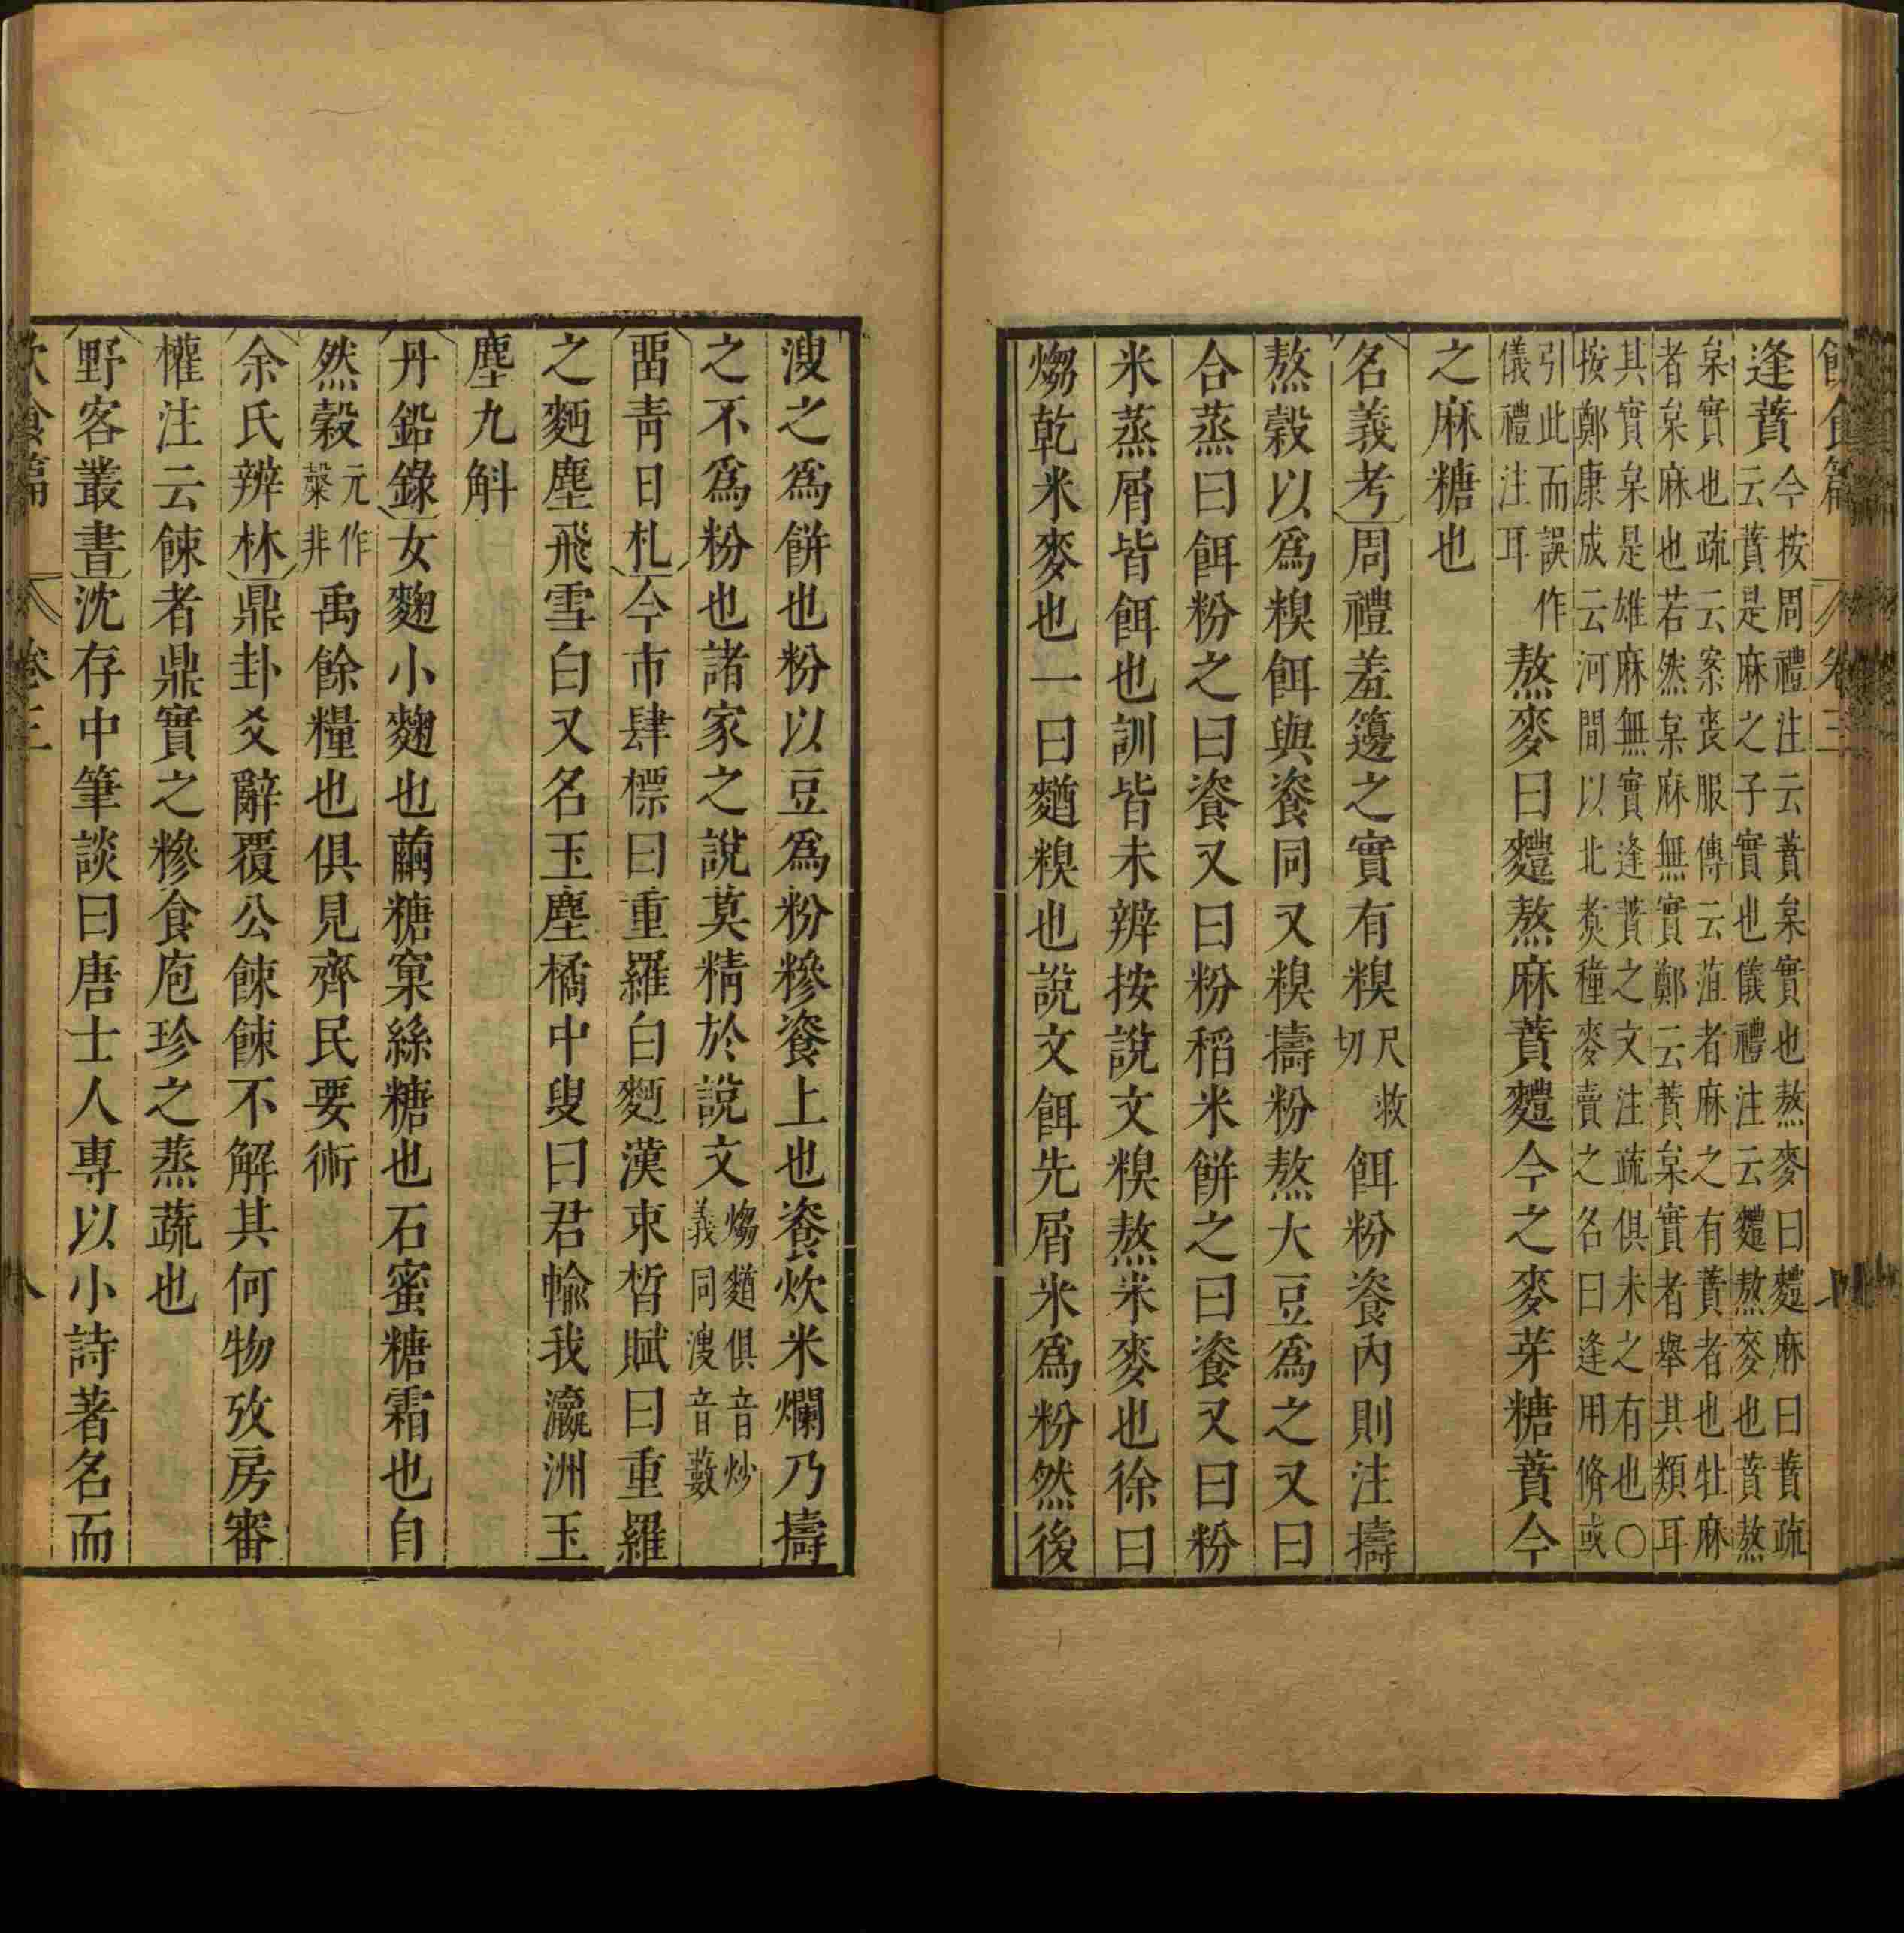 飲食篇 卷三
逢蕡今按周禮注云蕡枲實也熬麥曰麷麻曰蕡疏
云蕡是麻之子實也儀禮注云麷熬麥也蕡熬
枲實也疏云案喪服傳云菹者麻之有蕡者也牡麻
者枲麻也若然枲麻無實鄭云蕡枲實者舉其類耳
其實枲是雄麻無實逢蕡之文注疏俱未之有也〇
按鄭康成云河間以北煑穜麥賣之名曰逢用脩或
引此而誤作儀禮注耳熬麥曰麷熬麻蕡麷今之麥芽糖蕡今
之麻糖也
名義考周禮羞籩之實有糗尺救切餌粉餈內則注擣
熬穀以爲糗餌與餈同又糗擣粉熬大豆爲之又曰
合蒸曰餌粉之曰餈又曰粉稻米餅之曰餈又曰粉
米蒸屑皆餌也訓皆未辨按說文糗熬米麥也徐曰
㷅乾米麥也一曰麨糗也說文餌先屑米爲粉然後
溲之爲餅也粉以豆爲粉糝餈上也餈炊米爛乃擣
之不爲粉也諸家之說莫精於說文㷅麨俱音炒義同溲音藪
畱靑日札今市肆標曰重羅白麪漢朿晳賦曰重羅
之麪塵飛雪白又名玉塵橘中叟曰君輸我瀛洲玉
塵九斛
丹鉛錄女麴小麴也繭糖窠絲糖也石蜜糖霜也自
然穀元作槩非禹餘糧也俱見齊民要術
余氏辨林鼎卦爻辭覆公餗餗不解其何物攷房審
權注云餗者鼎實之糝食庖珍之蒸蔬也
野客叢書沈存中筆談曰唐士人專以小詩著名而
飲食篇 卷三 八